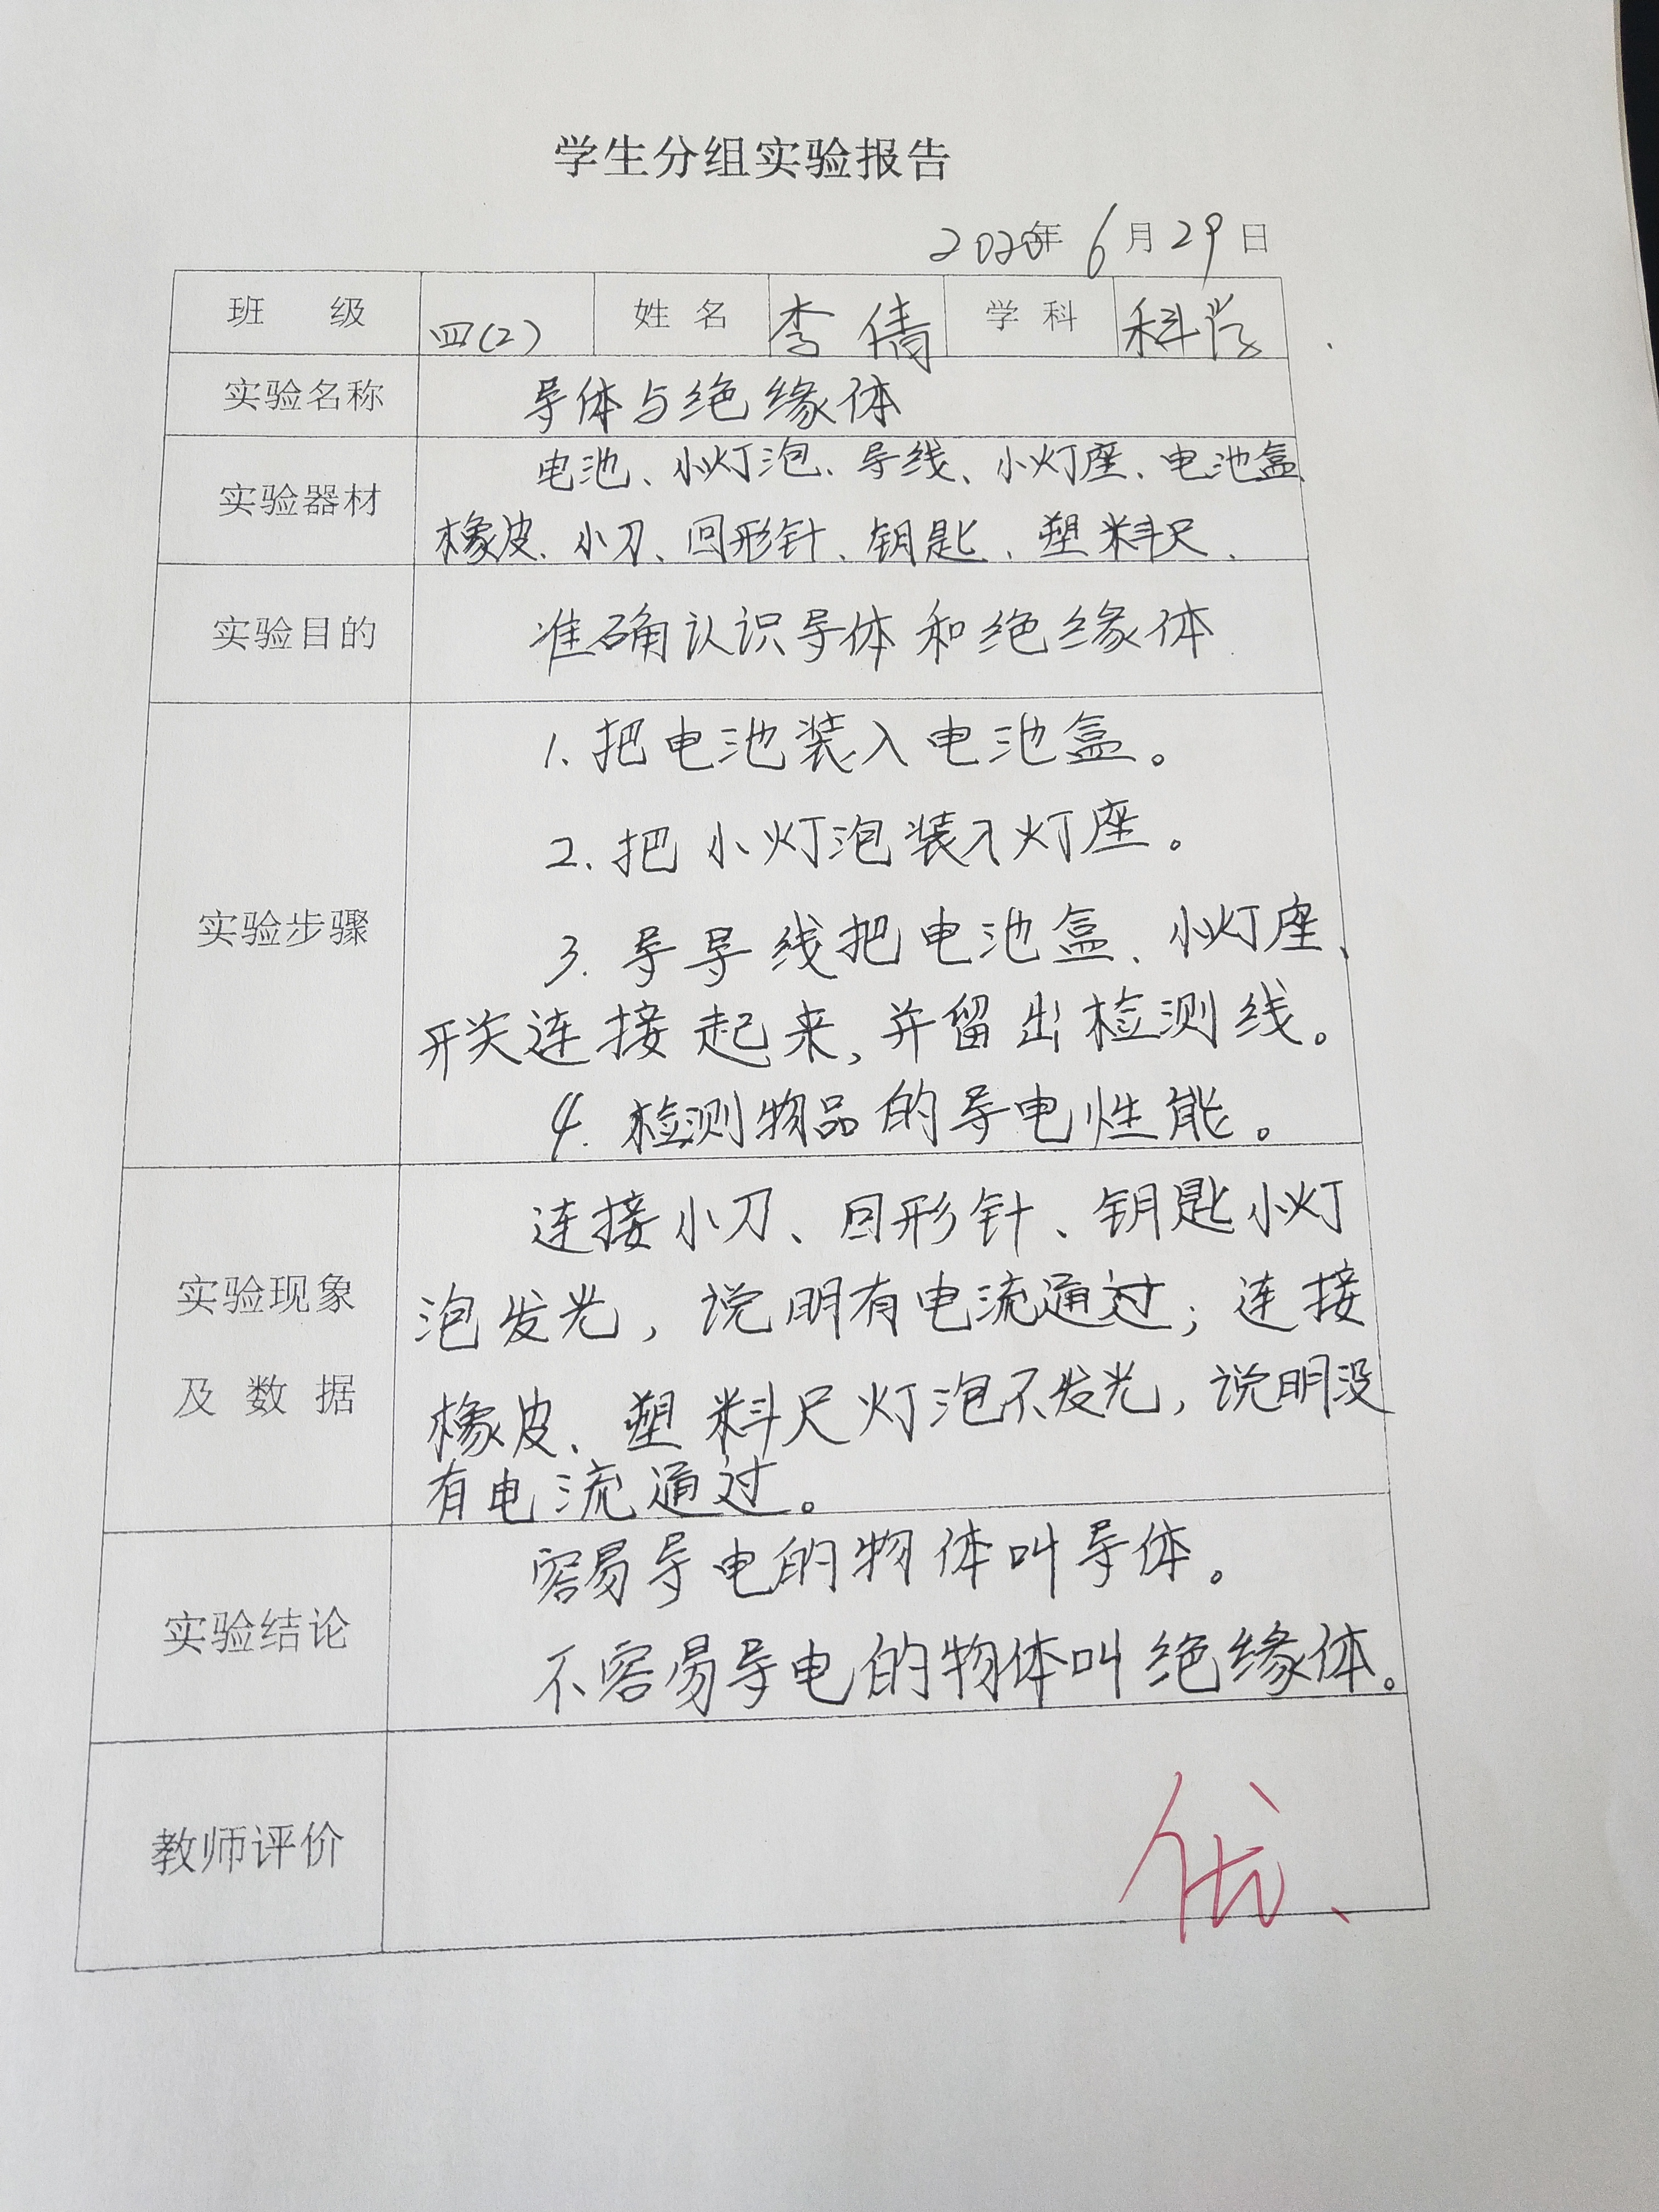 学生分组实验报告
2020年6月29日
班 级 四(2) 姓 名 李倩 学 科 科学
实验名称 导体与绝缘体
实验器材 电池、小灯泡、导线、小灯座、电池盒、
橡皮、小刀、回形针、钥匙、塑料尺、
实验目的 准确认识导体和绝缘体
实验步骤
1.把电池装入电池盒。
2.把小灯泡装入灯座。
3.导导线把电池盒、小灯座、
开关连接起来,并留出检测线。
4.检测物品的导电性能。
实验现象
及 数 据
连接小刀、回形针、钥匙小灯
泡发光,说明有电流通过;连接
橡皮、塑料尺灯泡不发光,说明没
有电流通过。
实验结论
容易导电的物体叫导体。
不容易导电的物体叫绝缘体。
教师评价 优、